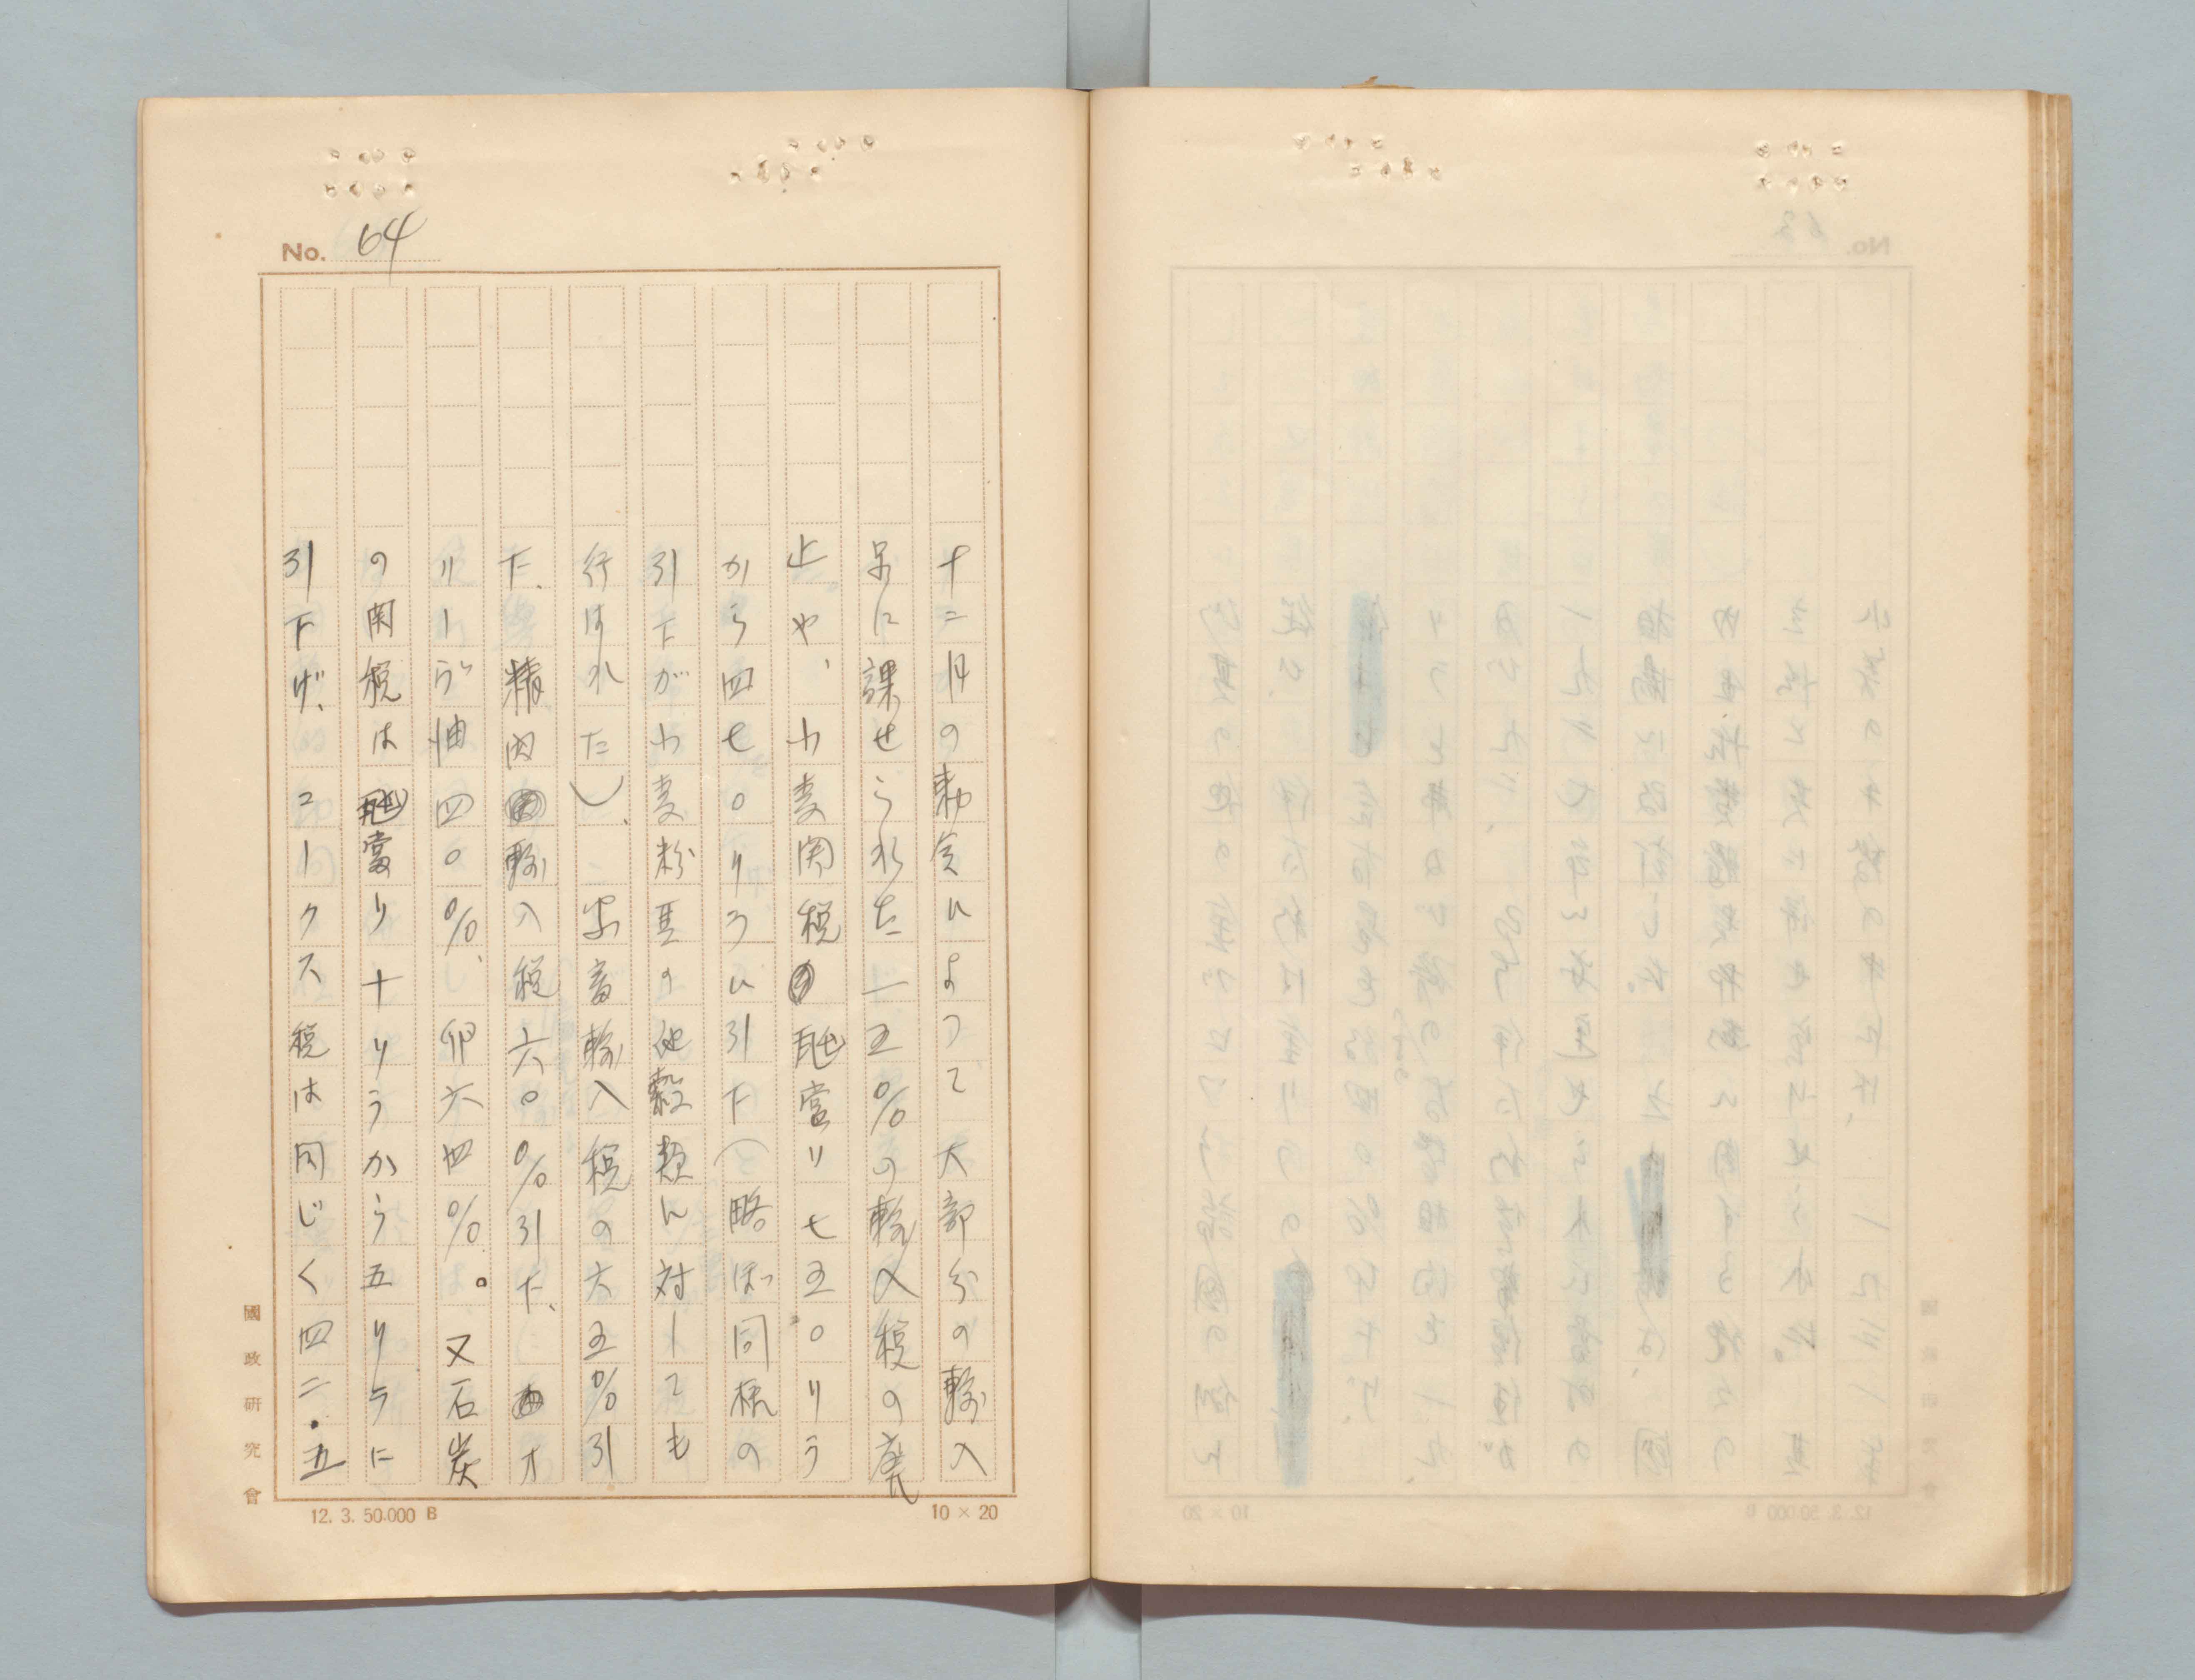 No. 64
十二月の勅令によつて大部分の輸入
品に課せられた一五%の輸入税の廃
止や、小麦関税瓲当リ七五〇リラ
から四七〇リラに引下(略ぼ同様の
引下が小麦粉其の他穀類に対しても
行はれた)、家畜輸入税の六五%引
下、精肉輸入税六〇%引下、オ
リーヴ油四〇%、卵六四%。又石炭
の関税は瓲當り十リラから五リラに
引下げ、コークス税は同じく四二・五
國政研究會
12. 3. 50.000 B
10 × 20